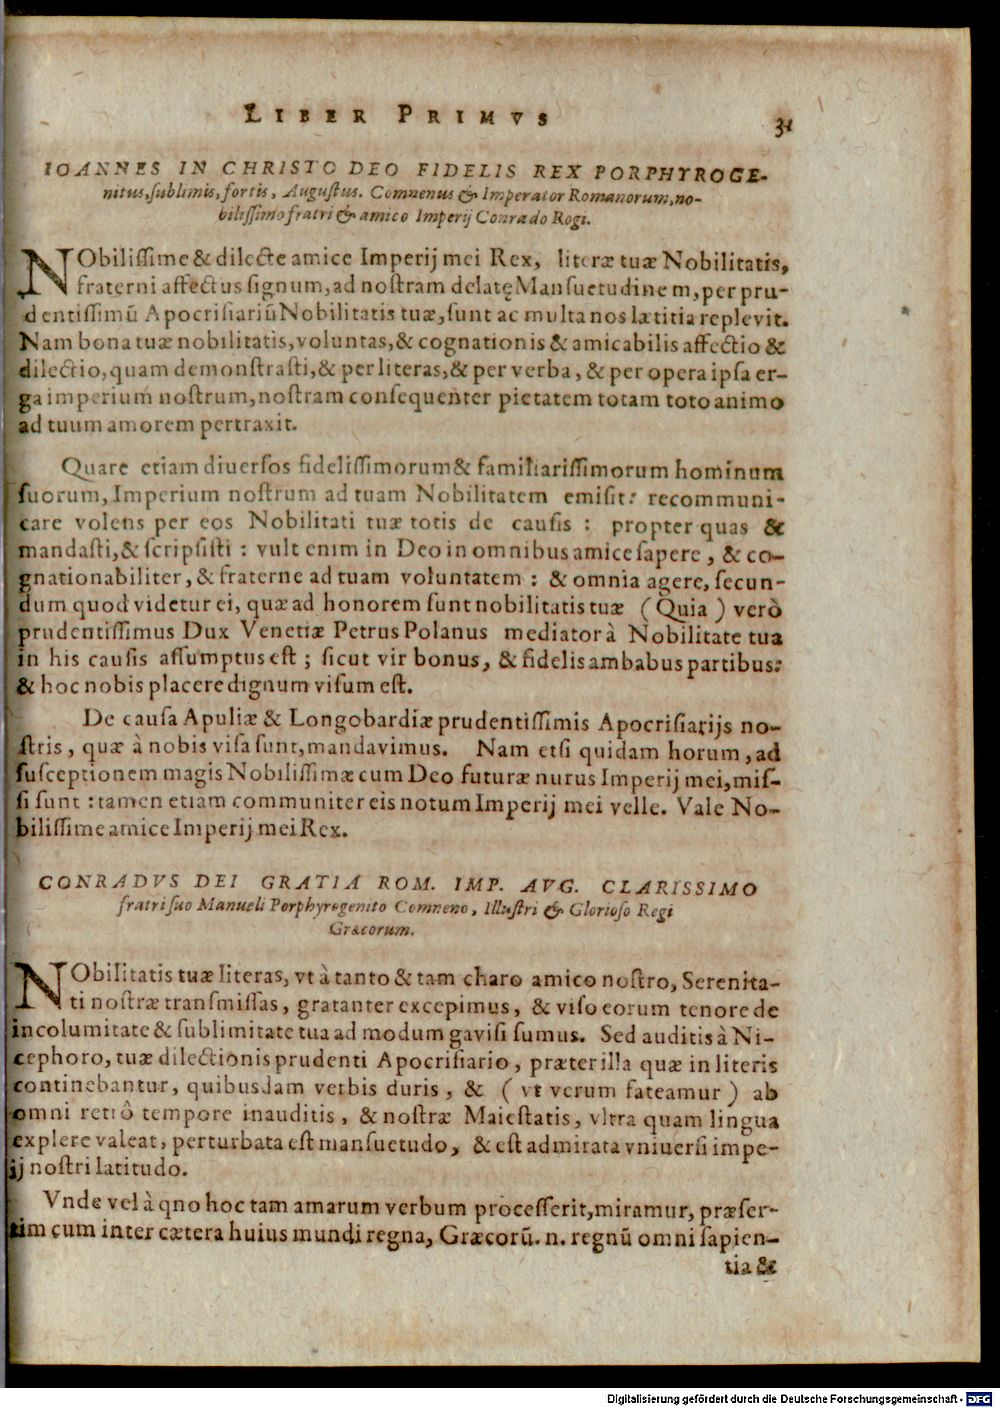 LIBER PRIMVS 31
IOANNES IN CHRISTO DEO FIDELIS REX PORPHYROGE-
nitus, ſublimis, fortis, Auguſtus. Comnenus & Imperator Romanorum, no-
biliſſimo fratri & amico Imperij Conrado Rogi.
NObiliſſime & dilecte amice Imperij mei Rex, literæ tuæ Nobilitatis,
fraterni affectus ſignum, ad noſtram delatę Manſuetudinem, per pru-
dentiſſimū Apocriſiariū Nobilitatis tuæ, ſunt ac multa nos lætitia replevit.
Nam bona tuæ nobilitatis, voluntas, & cognationis & amicabilis affectio &
dilectio, quam demonſtraſti, & per literas, & per verba, & per opera ipſa er-
ga imperium noſtrum, noſtram conſequenter pietatem totam toto animo
ad tuum amorem pertraxit.
Quare etiam diuerſos fideliſſimorum & familiariſſimorum hominum
ſuorum, Imperium noſtrum ad tuam Nobilitatem emiſit: recommuni-
care volens per eos Nobilitati tuæ totis de cauſis : propter quas &
mandaſti, & ſcripſiſti : vult enim in Deo in omnibus amice ſapere, & co-
gnationabiliter, & fraterne ad tuam voluntatem : & omnia agere, ſecun-
dum quod videtur ei, quæ ad honorem ſunt nobilitatis tuæ (Quia) verò
prudentiſſimus Dux Venetiæ Petrus Polanus mediator à Nobilitate tua
in his cauſis aſſumptus eſt ; ſicut vir bonus, & fidelis ambabus partibus:
& hoc nobis placere dignum viſum eſt.
De cauſa Apuliæ & Longobardiæ prudentiſſimis Apocriſiarijs no-
ſtris, quæ à nobis viſa ſunt, mandavimus. Nam etſi quidam horum, ad
ſuſceptionem magis Nobiliſſimæ cum Deo futuræ nurus Imperij mei, miſ-
ſi ſunt : tamen etiam communiter eis notum Imperij mei velle. Vale No-
biliſſime amice Imperij mei Rex.
CONRADVS DEI GRATIA ROM. IMP. AVG. CLARISSIMO
fratri ſuo Manueli Porphyrogenito Comneno, Illuſtri & Glorioſo Regi
Græcorum.
NObilitatis tuæ literas, vt à tanto & tam charo amico noſtro, Serenita-
ti noſtræ tranſmiſſas, gratanter excepimus, & viſo eorum tenore de
incolumitate & ſublimitate tua ad modum gaviſi ſumus. Sed auditis à Ni-
cephoro, tuæ dilectionis prudenti Apocriſiario, præter illa quæ in literis
continebantur, quibusdam verbis duris, & (vt verum fateamur) ab
omni retrò tempore inauditis, & noſtræ Maieſtatis, vltra quam lingua
explere valeat, perturbata eſt manſuetudo, & eſt admirata vniuerſi impe-
ij noſtri latitudo.
Vnde vel à qno hoc tam amarum verbum proceſſerit, miramur, præſer-
tim cum inter cætera huius mundi regna, Græcorū. n. regnū omni ſapien-
tia &
Digitalisierung gefördert durch die Deutsche Forschungsgemeinschaft - DFG